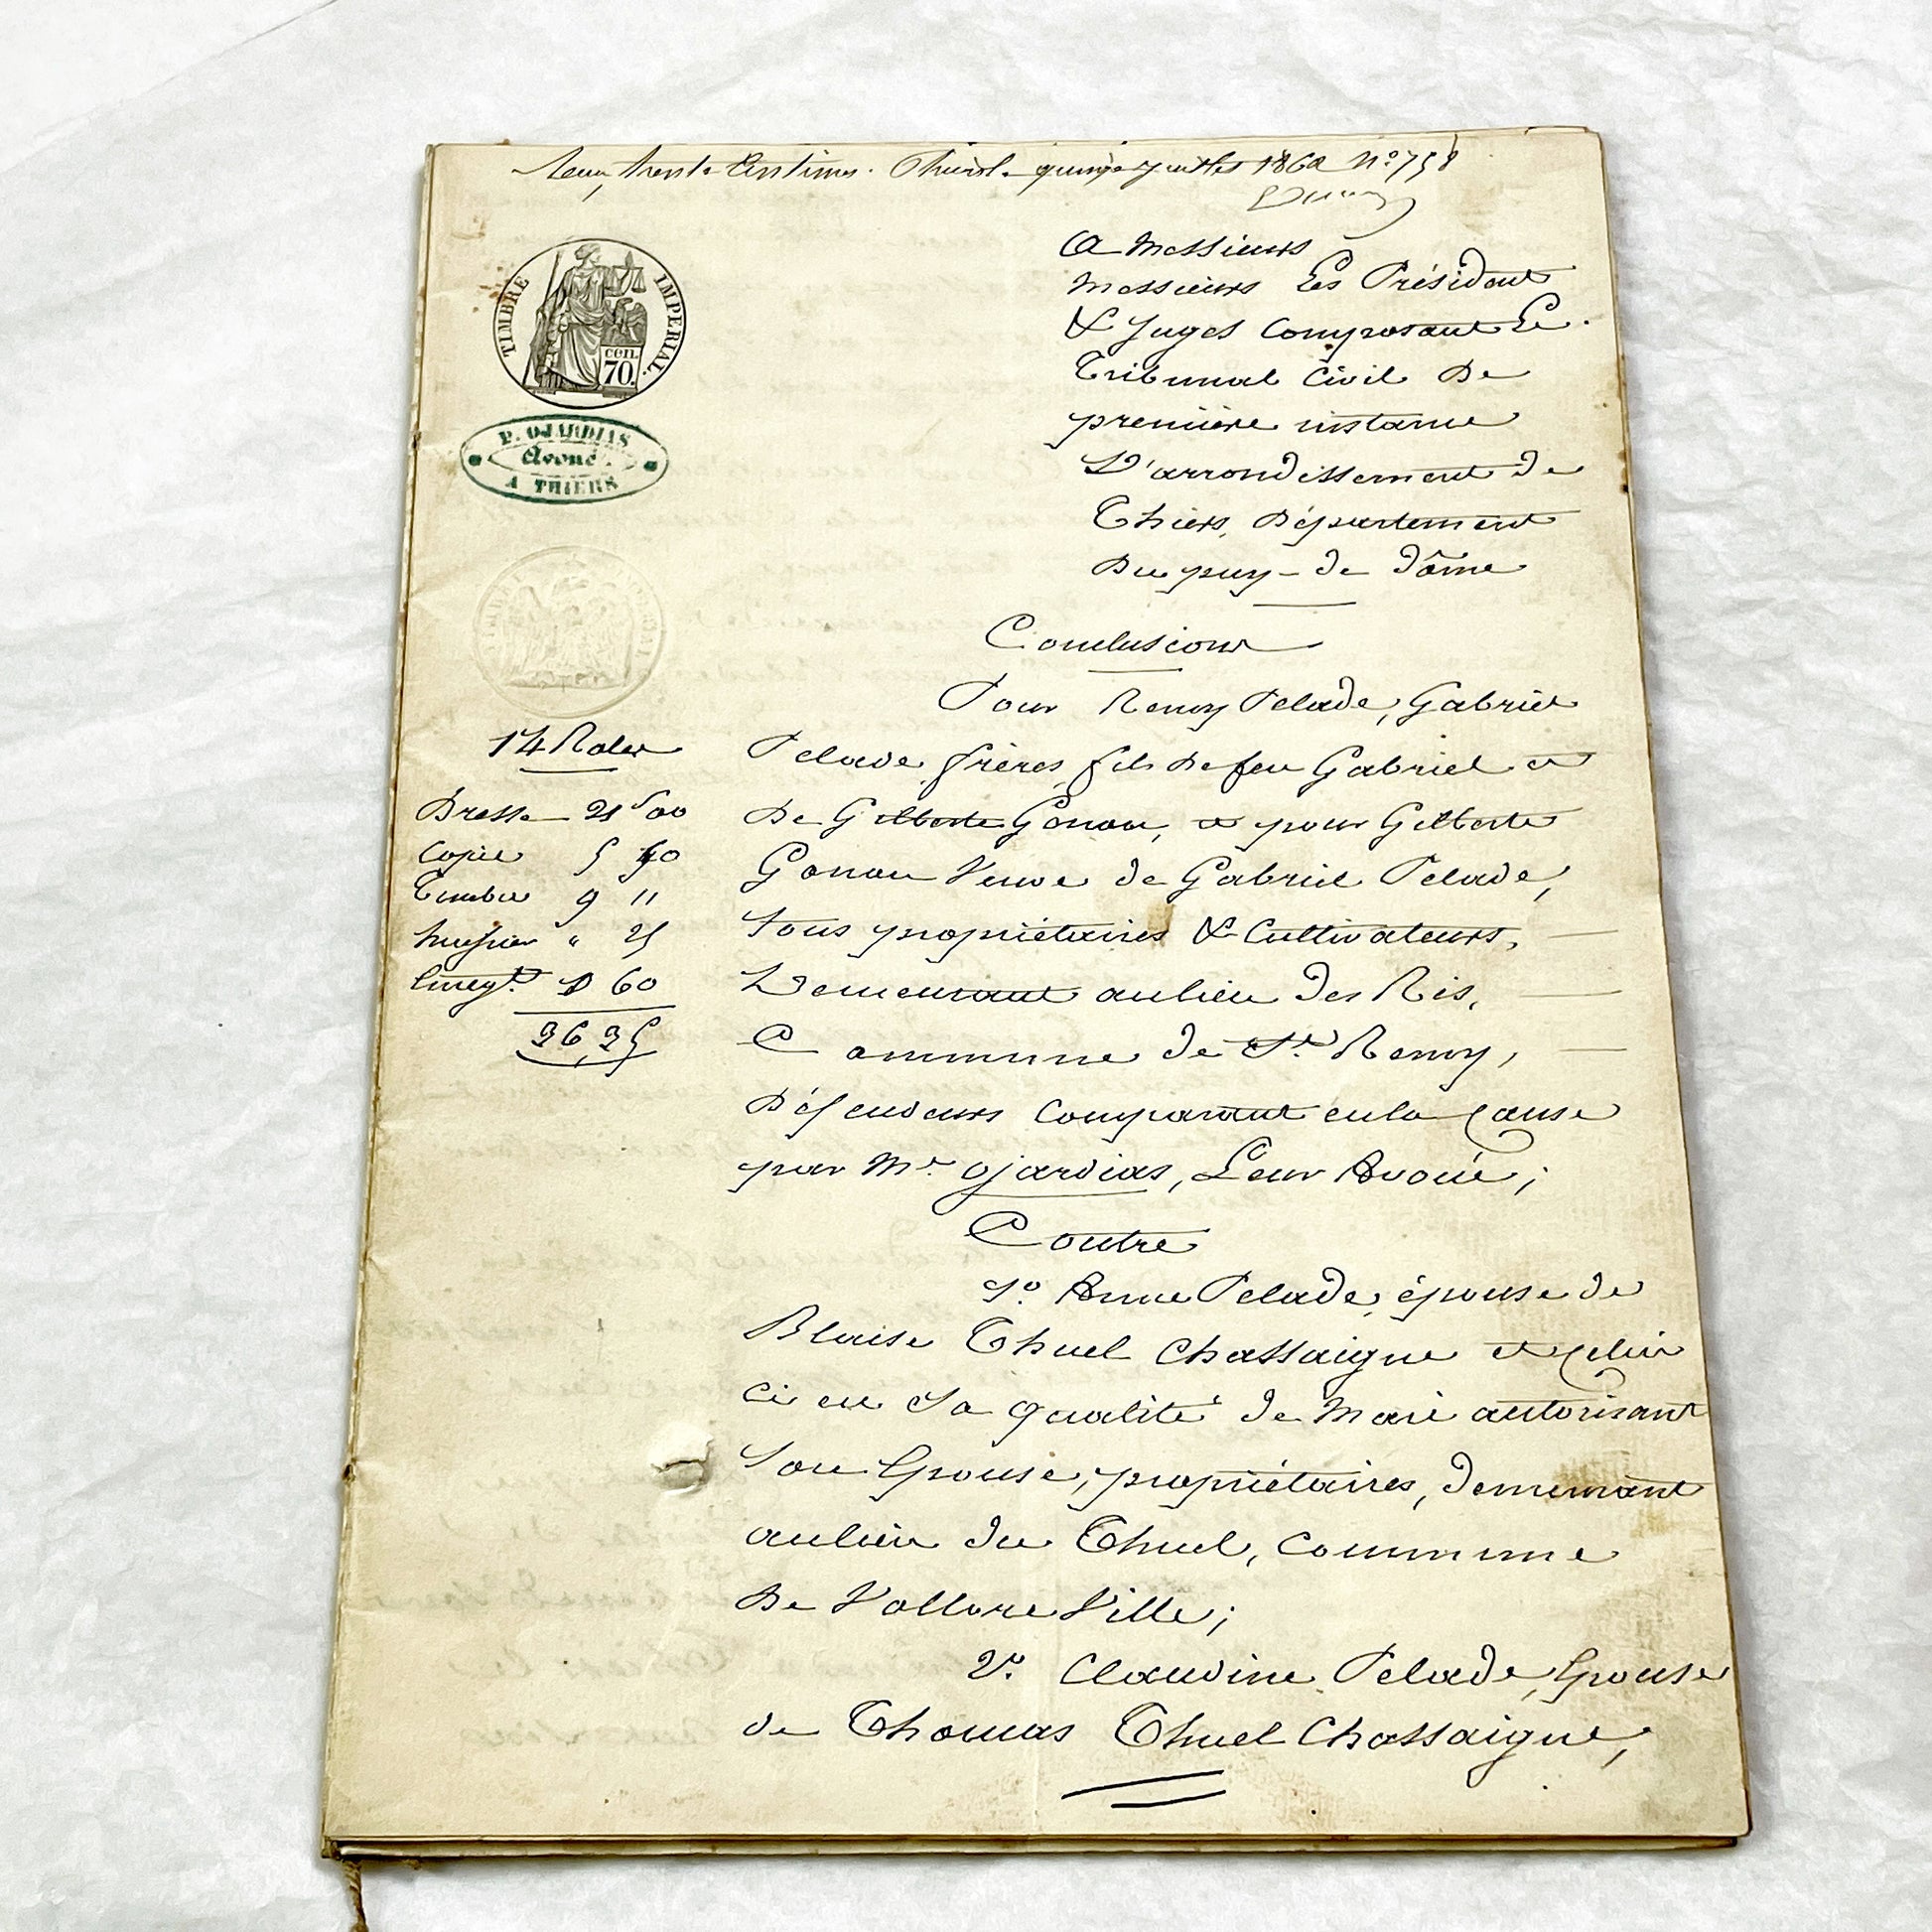 trente Centimes. Thiers le quinze juillet 1862 No 758
A Messieurs
Messieurs Les Président
& Juges Composant Le
Tribunal Civil De
première instance
D'arrondissement de
Thiers, Département
Du puy-de dôme
TIMBRE IMPERIAL.
cen.
70.
P. OJARDIAS
Avoué
A THIERS
Conclusions
Pour Remy Pelade, Gabriel
Pelade, frères, fils de feu Gabriel et
De Gilberte Gonon, et pour Gilberte
Gonon Veuve de Gabriel Pelade,
tous propriétaires & Cultivateurs,
Demeurant au lieu des Ris,
Commune de St Remy,
Défendeurs Comparant en la Cause
par Me Ojardias, Leur Avoué;
14 Roles
Dresse 21f 00
Copie 5 40
Timbre 9 11
huissier " 25
Enregt. 60
36 35
Contre
1o. Anne Pelade, épouse de
Blaise Thuel Chassaigne et celui
ci en Sa qualité de Mari autorisant
Son Epouse, propriétaires, demeurant
au lieu du Thuel, Commune
De Vollore Ville;
2o. Claudine Pelade, Epouse
de Thomas Thuel Chassaigne,